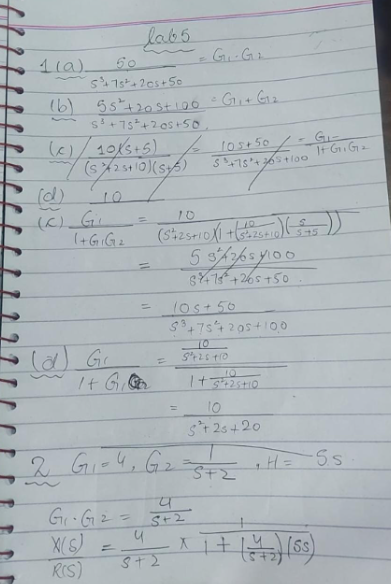 lab 5
1 (a) 50 / (s³+7s²+20s+50) = G₁·G₂
(b) (5s²+20s+100) / (s³+7s²+20s+50) = G₁+G₂
(c) 10(s+5) / ((s²+2s+10)(s+5)) = (10s+50) / (s³+7s²+20s+100) = G₁ / (1+G₁G₂)
(d) 10
(c) G₁ / (1+G₁G₂) = 10 / ((s²+2s+10)(1+(10/(s²+2s+10))(5/(s+5))))
= (5s²+20s+100) / (s³+7s²+20s+50)
= (10s+50) / (s³+7s²+20s+100)
(d) G₁ / (1+G₁) = (10/(s²+2s+10)) / (1+10/(s²+2s+10))
= 10 / (s²+2s+20)
2 G₁=4, G₂=1/(s+2), H= 5s
G₁·G₂ = 4/(s+2)
X(s)/R(s) = 4/(s+2) × 1/(1+(4/(s+2))(5s))